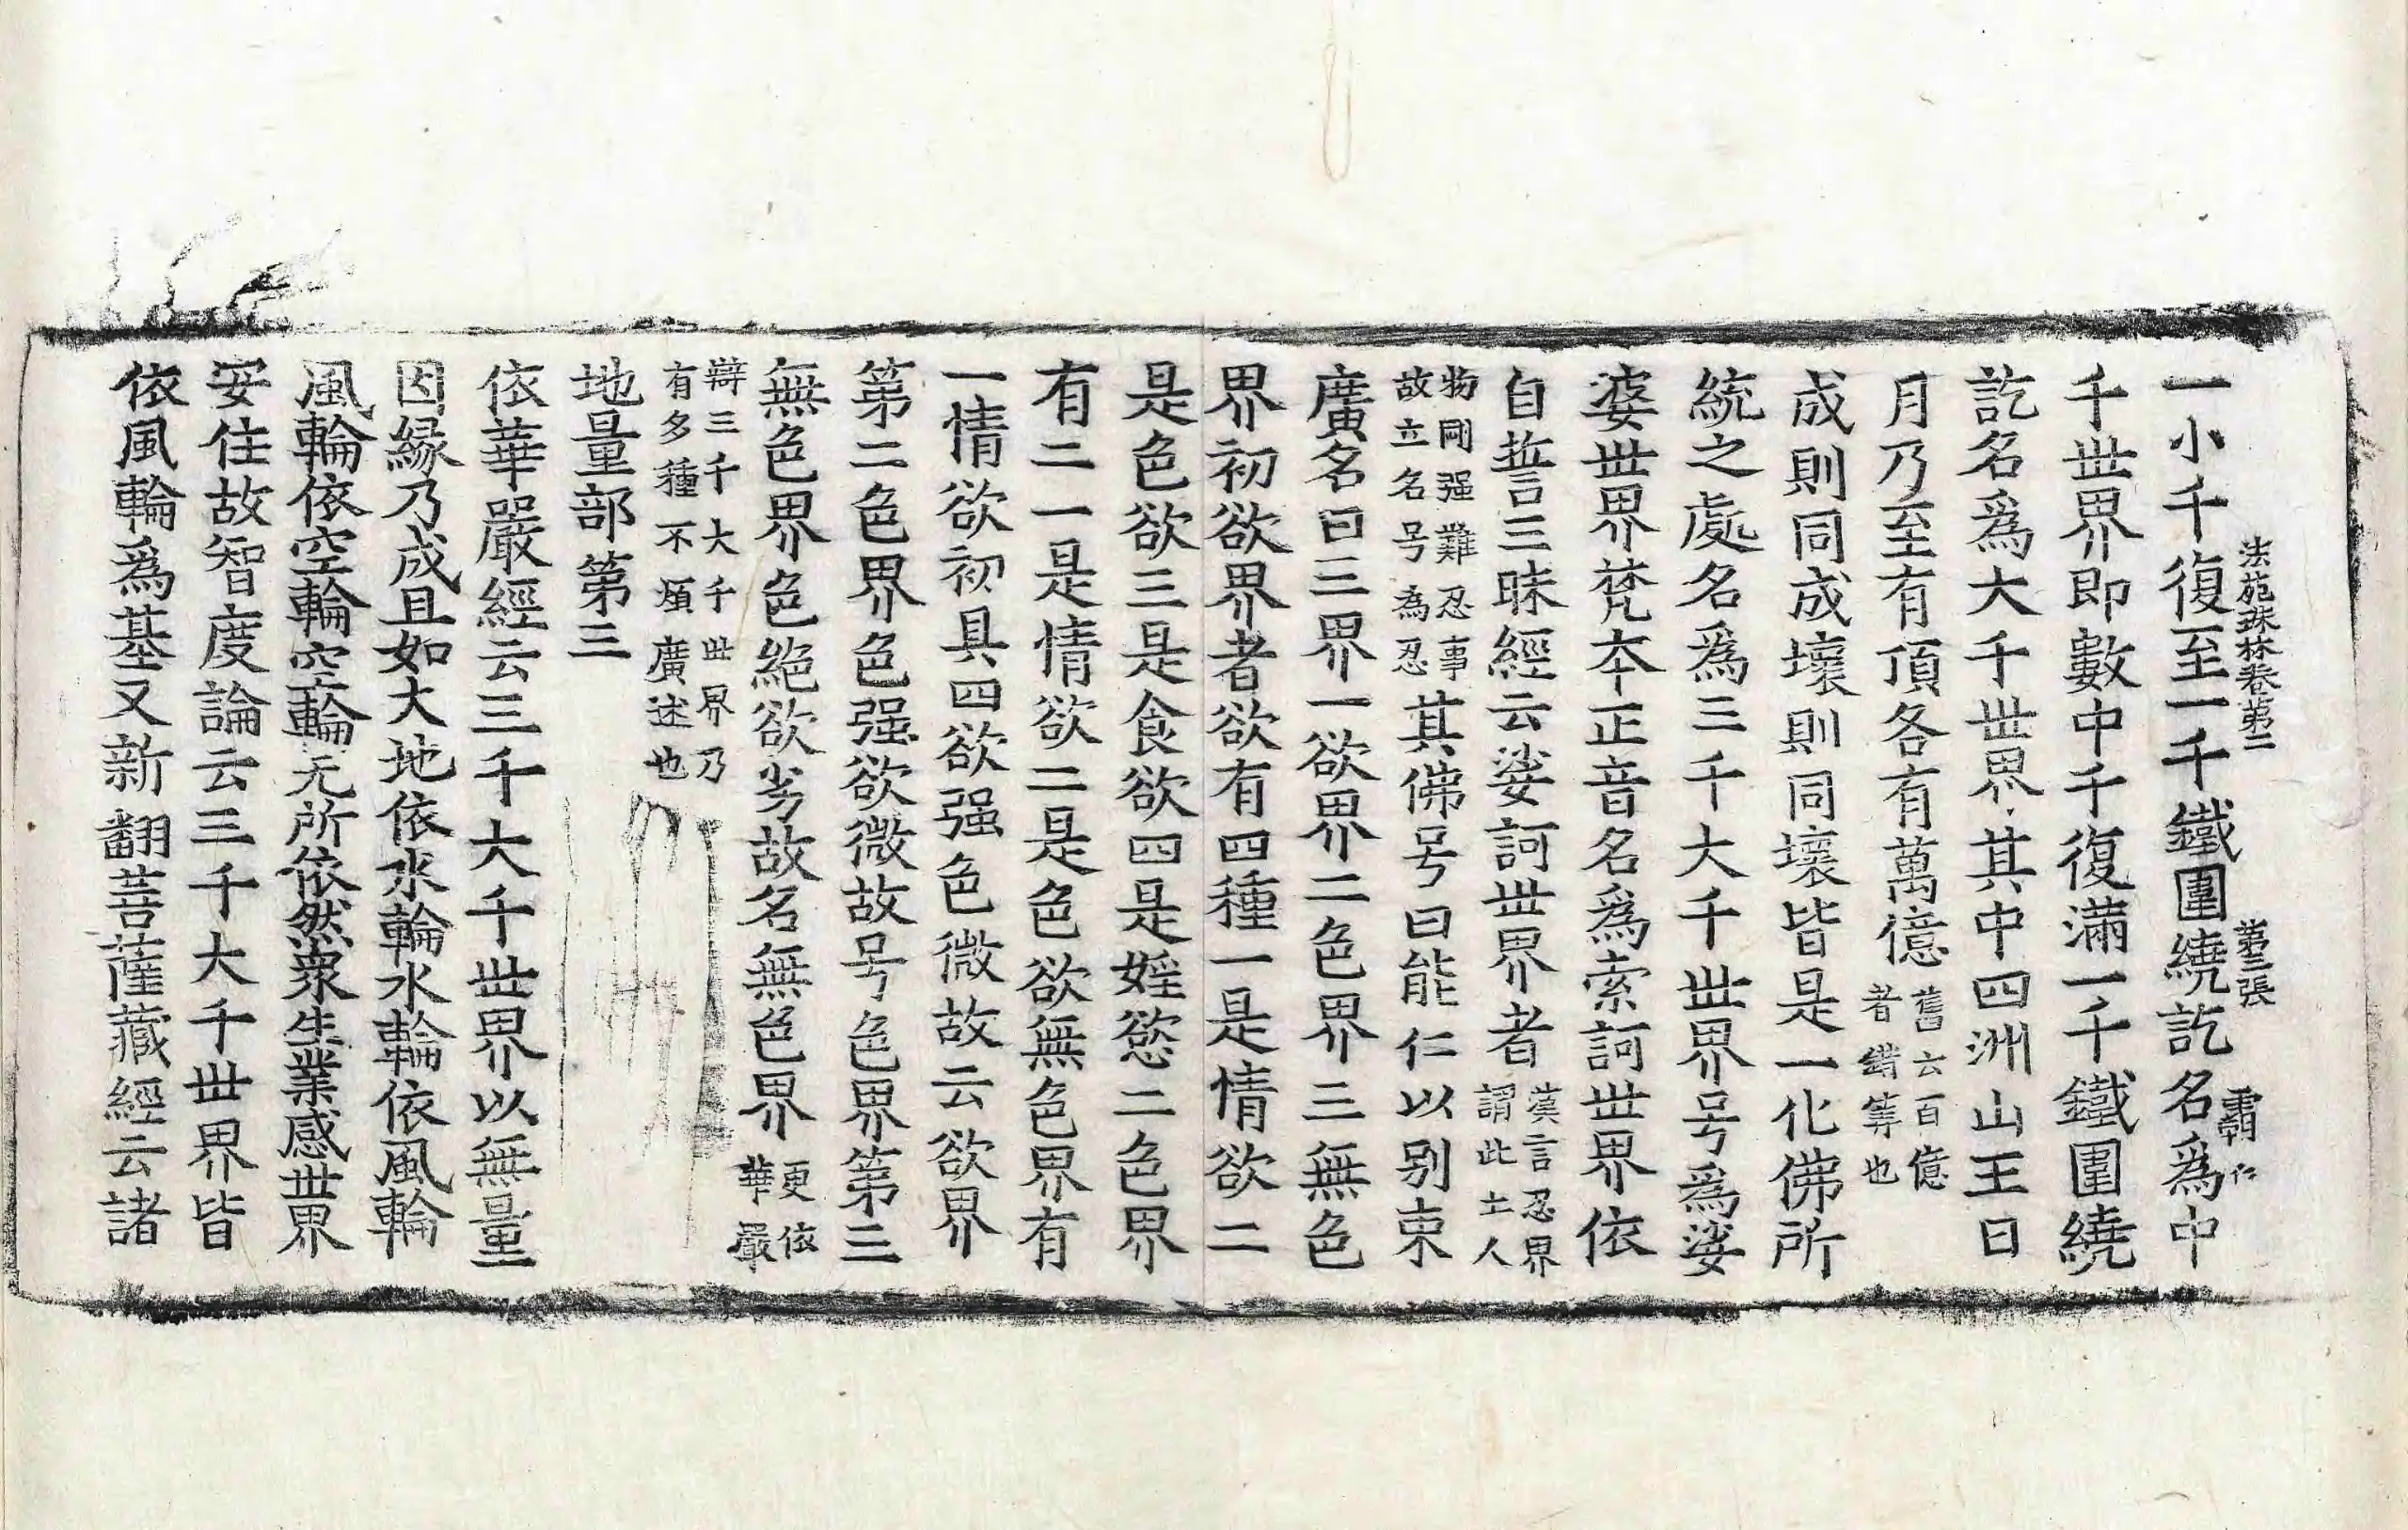 一小千復至一千鐵圍繞訖名爲中
法苑珠林卷第二 第三張 覇 仁
千世界即數中千復滿一千鐵圍繞
訖名爲大千世界其中四洲山王日
月乃至有頂各有萬億舊云百億者錯筭也
成則同成壞則同壞皆是一化佛所
統之處名爲三千大千世界号爲娑
婆世界梵本正音名爲索訶世界依
自誓三昧經云娑訶世界者漢言忍界謂此土人
物剛强難忍事故立名号為忍其佛号曰能仁以别束
廣名曰三界一欲界二色界三無色
界初欲界者欲有四種一是情欲二
是色欲三是食欲四是婬慾二色界
有二一是情欲二是色欲無色界有
一情欲初具四欲强色微故云欲界
第二色界色强欲微故号色界第三
無色界色絕欲劣故名無色界更依華嚴
辯三千大千世界乃有多種不煩廣述也
地量部第三
依華嚴經云三千大千世界以無量
因緣乃成且如大地依水輪水輪依風輪
風輪依空輪空輪无所依然衆生業感世界
安住故智度論云三千大千世界皆
依風輪爲基又新翻菩薩藏經云諸